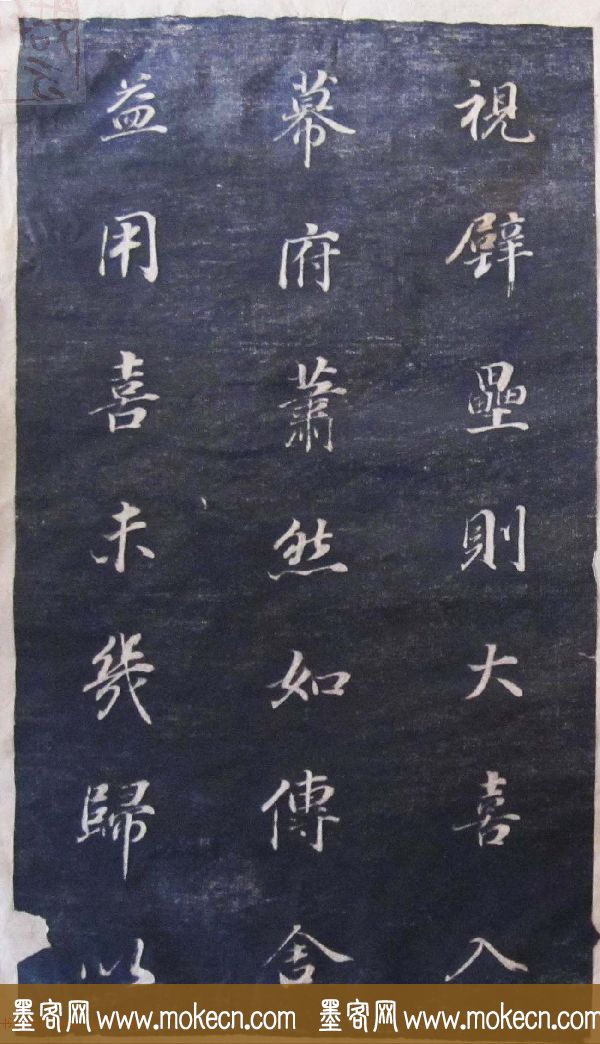 視壁壘則大喜入
幕府蕭然如傳舍
益用喜未幾歸以
墨客网 www.mokecn.com 墨客网 www.mokecn.com